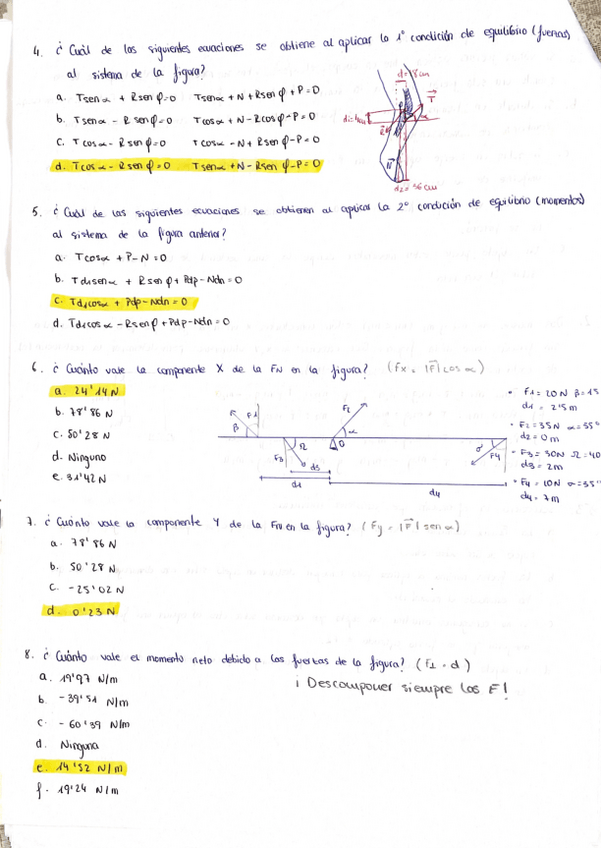 4. ¿ Cuál de las siguientes ecuaciones se obtiene al aplicar la 1° condición de equilibrio (fuerzas)
al sistema de la figura?
a. Tsenα + Rsenφ=0 Tsenα + N + Rsenφ + P = 0
b. Tsenα - Rsenφ=0 Tcosα + N - Rcosφ - P = 0
c. Tcosα - Rsenφ=0 Tcosα - N + Rsenφ - P = 0
d. Tcosα - Rsenφ=0 Tsenα + N - Rsenφ - P = 0
T
α
R
N
d2=36cm
5. ¿ Cuál de las siguientes ecuaciones se obtienen al aplicar la 2° condición de equilibrio (momentos)
al sistema de la figura anterior?
a. Tcosα + P - N = 0
b. Td1senα + Rsenφ + Pdp - Ndn = 0
c. Td1cosα + Pdp - Ndn = 0
d. Td1cosα - Rsenφ + Pdp - Ndn = 0
6. ¿ Cuánto vale la componente X de la FN en la figura? (Fx = |F| cosα)
a. 24'14 N
b. 78'86 N
c. 50'28 N
d. Ninguno
e. 31'42 N
F1
β
F2
α
F3
Ω
O
F4
d3
d1
d4
• F1 = 20N β=15
d1 = 2'5m
• F2 = 35N α=55°
d2 = 0m
• F3 = 30N Ω=40
d3 = 2m
• F4 = 10N α=35°
d4 = 7m
7. ¿ Cuánto vale la componente Y de la FN en la figura? (Fy = |F| senα)
a. 78'86 N
b. 50'28 N
c. -25'02 N
d. 0'23 N
8. ¿ Cuánto vale el momento neto debido a las fuerzas de la figura? (F⊥ · d)
a. 19'97 N/m
¡ Descomponer siempre las F!
b. -39'51 N/m
c. -60'39 N/m
d. Ninguna
e. 14'52 N/m
f. 19'24 N/m